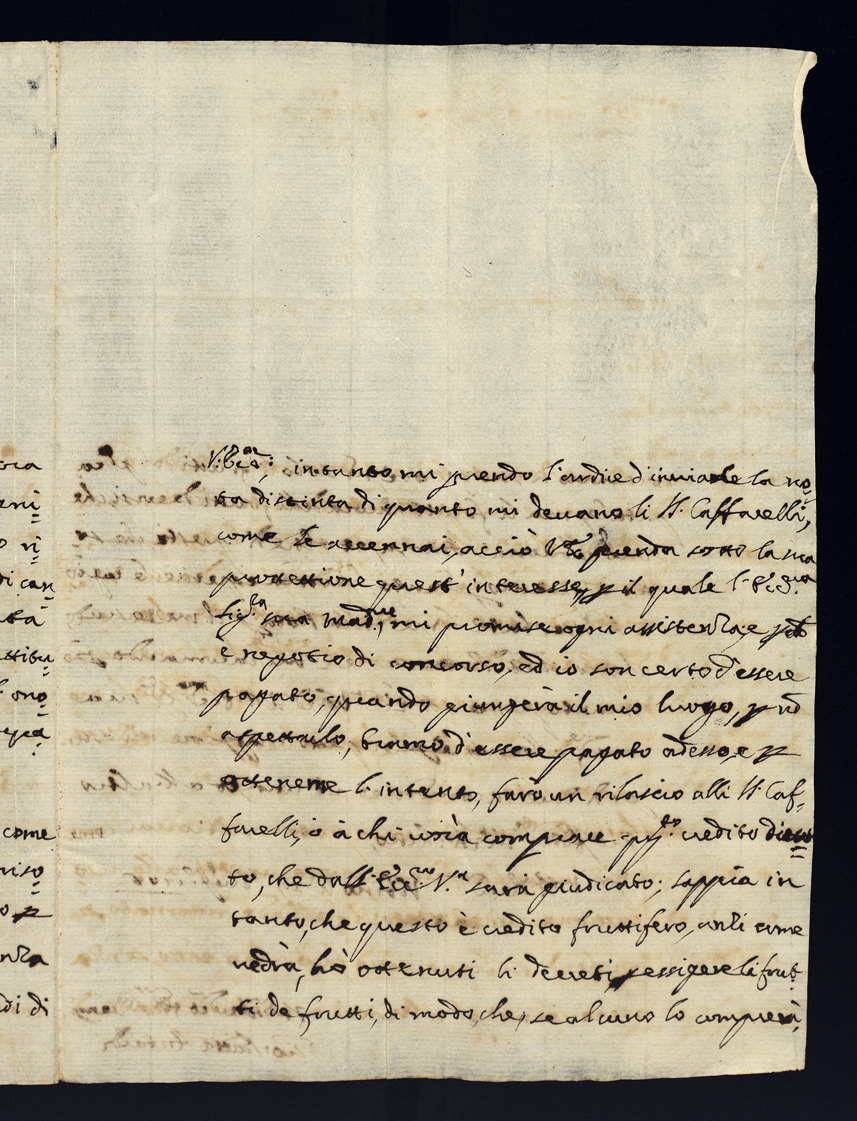 V. Ecc.za; intanto mi prendo l'ardire d'inviarle la no=
ta distinta di quanto mi devano li SS. Caffarelli,
come le accennai, acciò V. Ecc. prenda sotto la sua
protettione quest' interesse, p il quale l' Ecc.ma
Sig.ra sua mad.re, mi promise ogni assistenza, e
è negotio di concorso, ed io son certo d'essere
pagato, quando giungerà il mio luogo, p nō
aspettarlo, bramo d'essere pagato adesso, e p
ottenerne l'intento, farò un rilascio alli SS. Caf=
farelli, ò à chi vorà comprare credito
to, che dall' Ecc.mo V.ra sarà giudicato; sappia in
tanto, che questo è credito fruttifero, anzi come
vedrà, hò ottenuti li decreti, p essigere li frut=
ti de frutti, di modo, che, se alcuno lo comprerà,
ora
eni=
o ri=
di can
ta
ttitu=
ono=
come
riso=
o p
nza
di di